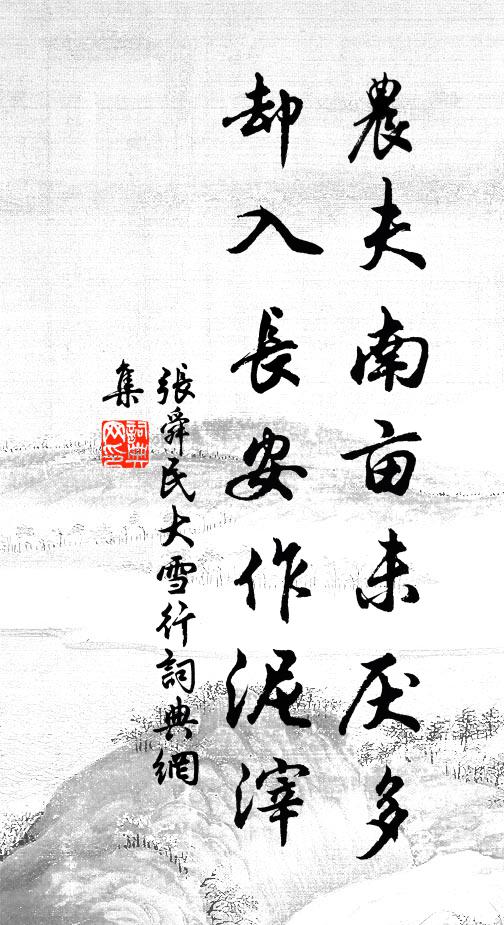 農夫南亩未厌多
却入長安作泥滓
張舜民大雪行詞典網
集